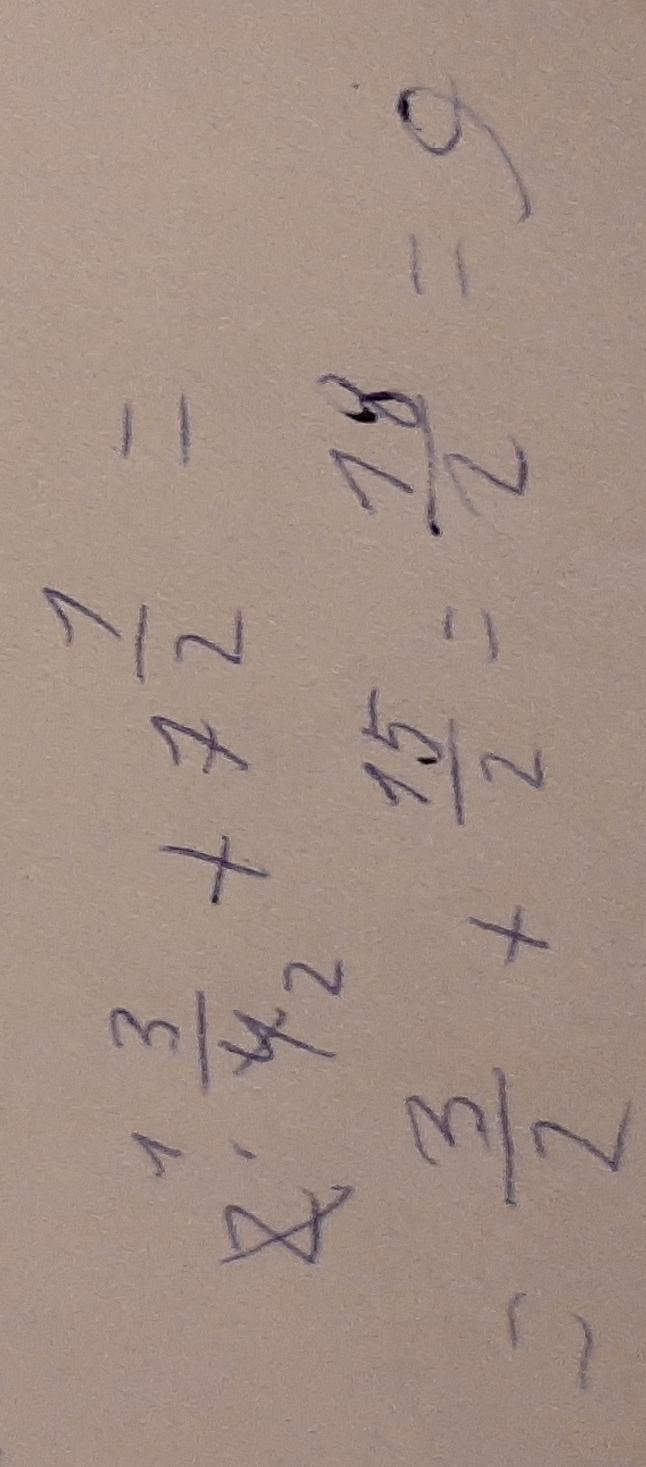 2̶ ¹ · 3/4̶ ₂ + 7 1/2 =
= 3/2 + 15/2 = 18/2 = 9